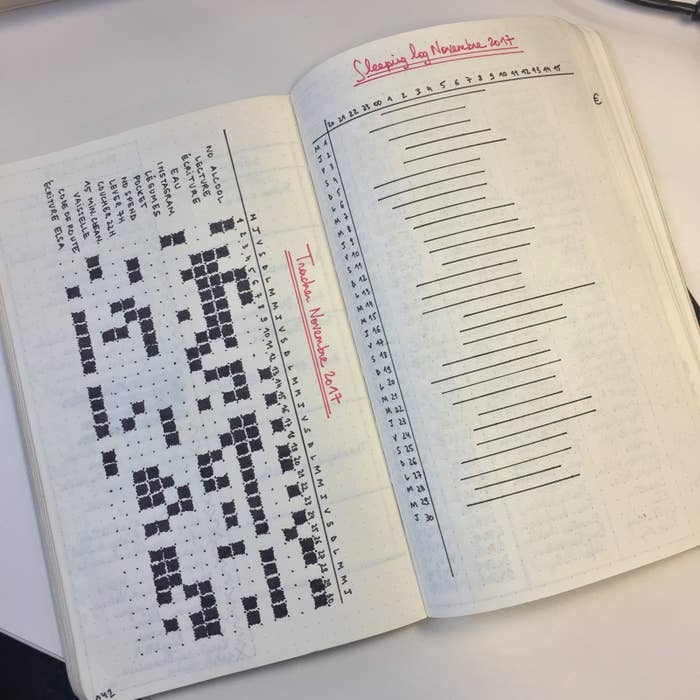 Tracker Novembre 2017
M J V S D L M M J V S D L M M J V S D L M M J V S D L M M J
1 2 3 4 5 6 7 8 9 10 11 12 13 14 15 16 17 18 19 20 21 22 23 24 25 26 27 28 29 30
NO ALCOOL
LECTURE
ÉCRITURE
EAU
INSTAGRAM
LÉGUMES
POCKET
NO SPEND
LEVER 7H
COUCHER 22H
15 MIN. CLEAN.
VAISSELLE
CODE DE ROUTE
ÉCRITURE ELSA
142
Sleeping log Novembre 2017
20 21 22 23 00 1 2 3 4 5 6 7 8 9 10 11 12 13 14 15
€
M 1
J 2
V 3
S 4
D 5
L 6
M 7
M 8
J 9
V 10
S 11
D 12
L 13
M 14
M 15
J 16
V 17
S 18
D 19
L 20
M 21
M 22
J 23
V 24
S 25
D 26
L 27
M 28
M 29
J 30